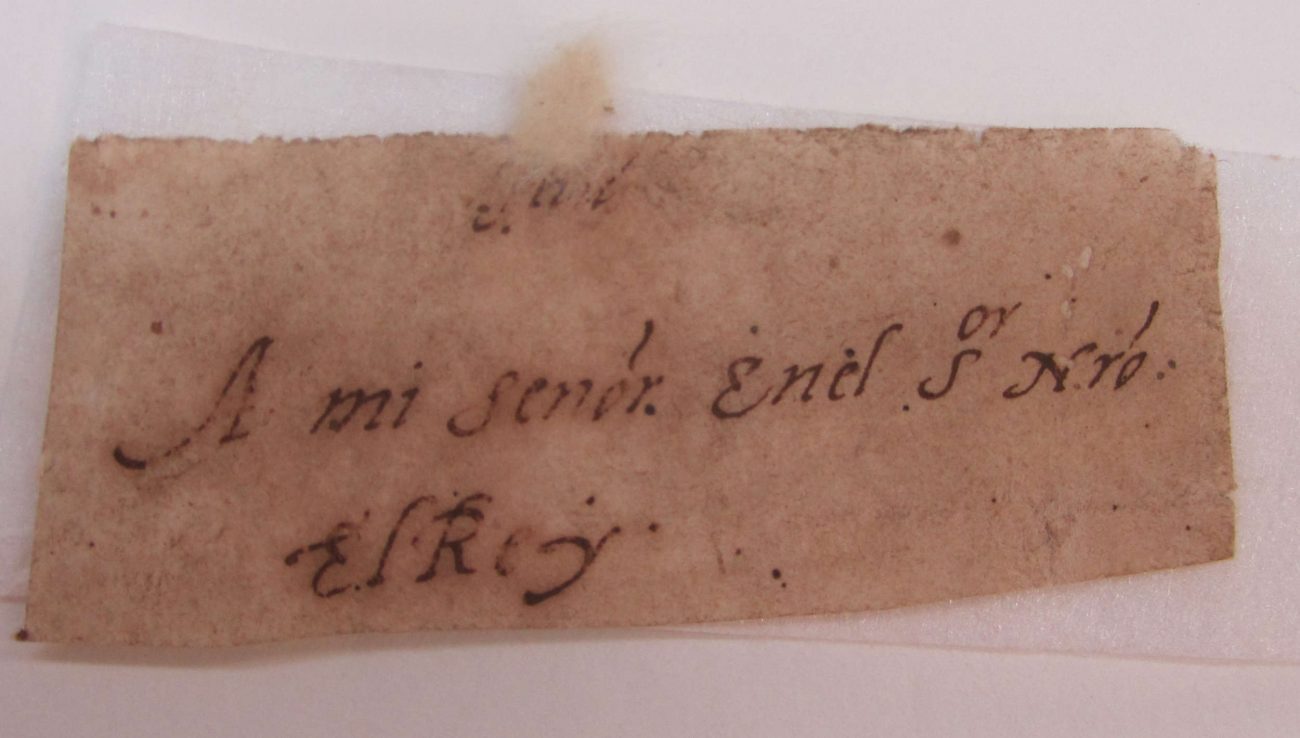 A mi señor. Enel S.or Nro.
El Rey.